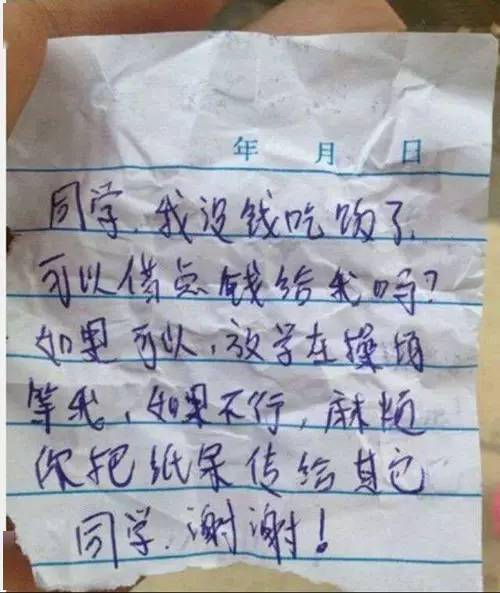 年 月 日
同学,我没钱吃饭了,
可以借点钱给我吗?
如果可以,放学在操场
等我,如果不行,麻烦
你把纸条传给其它
同学,谢谢!